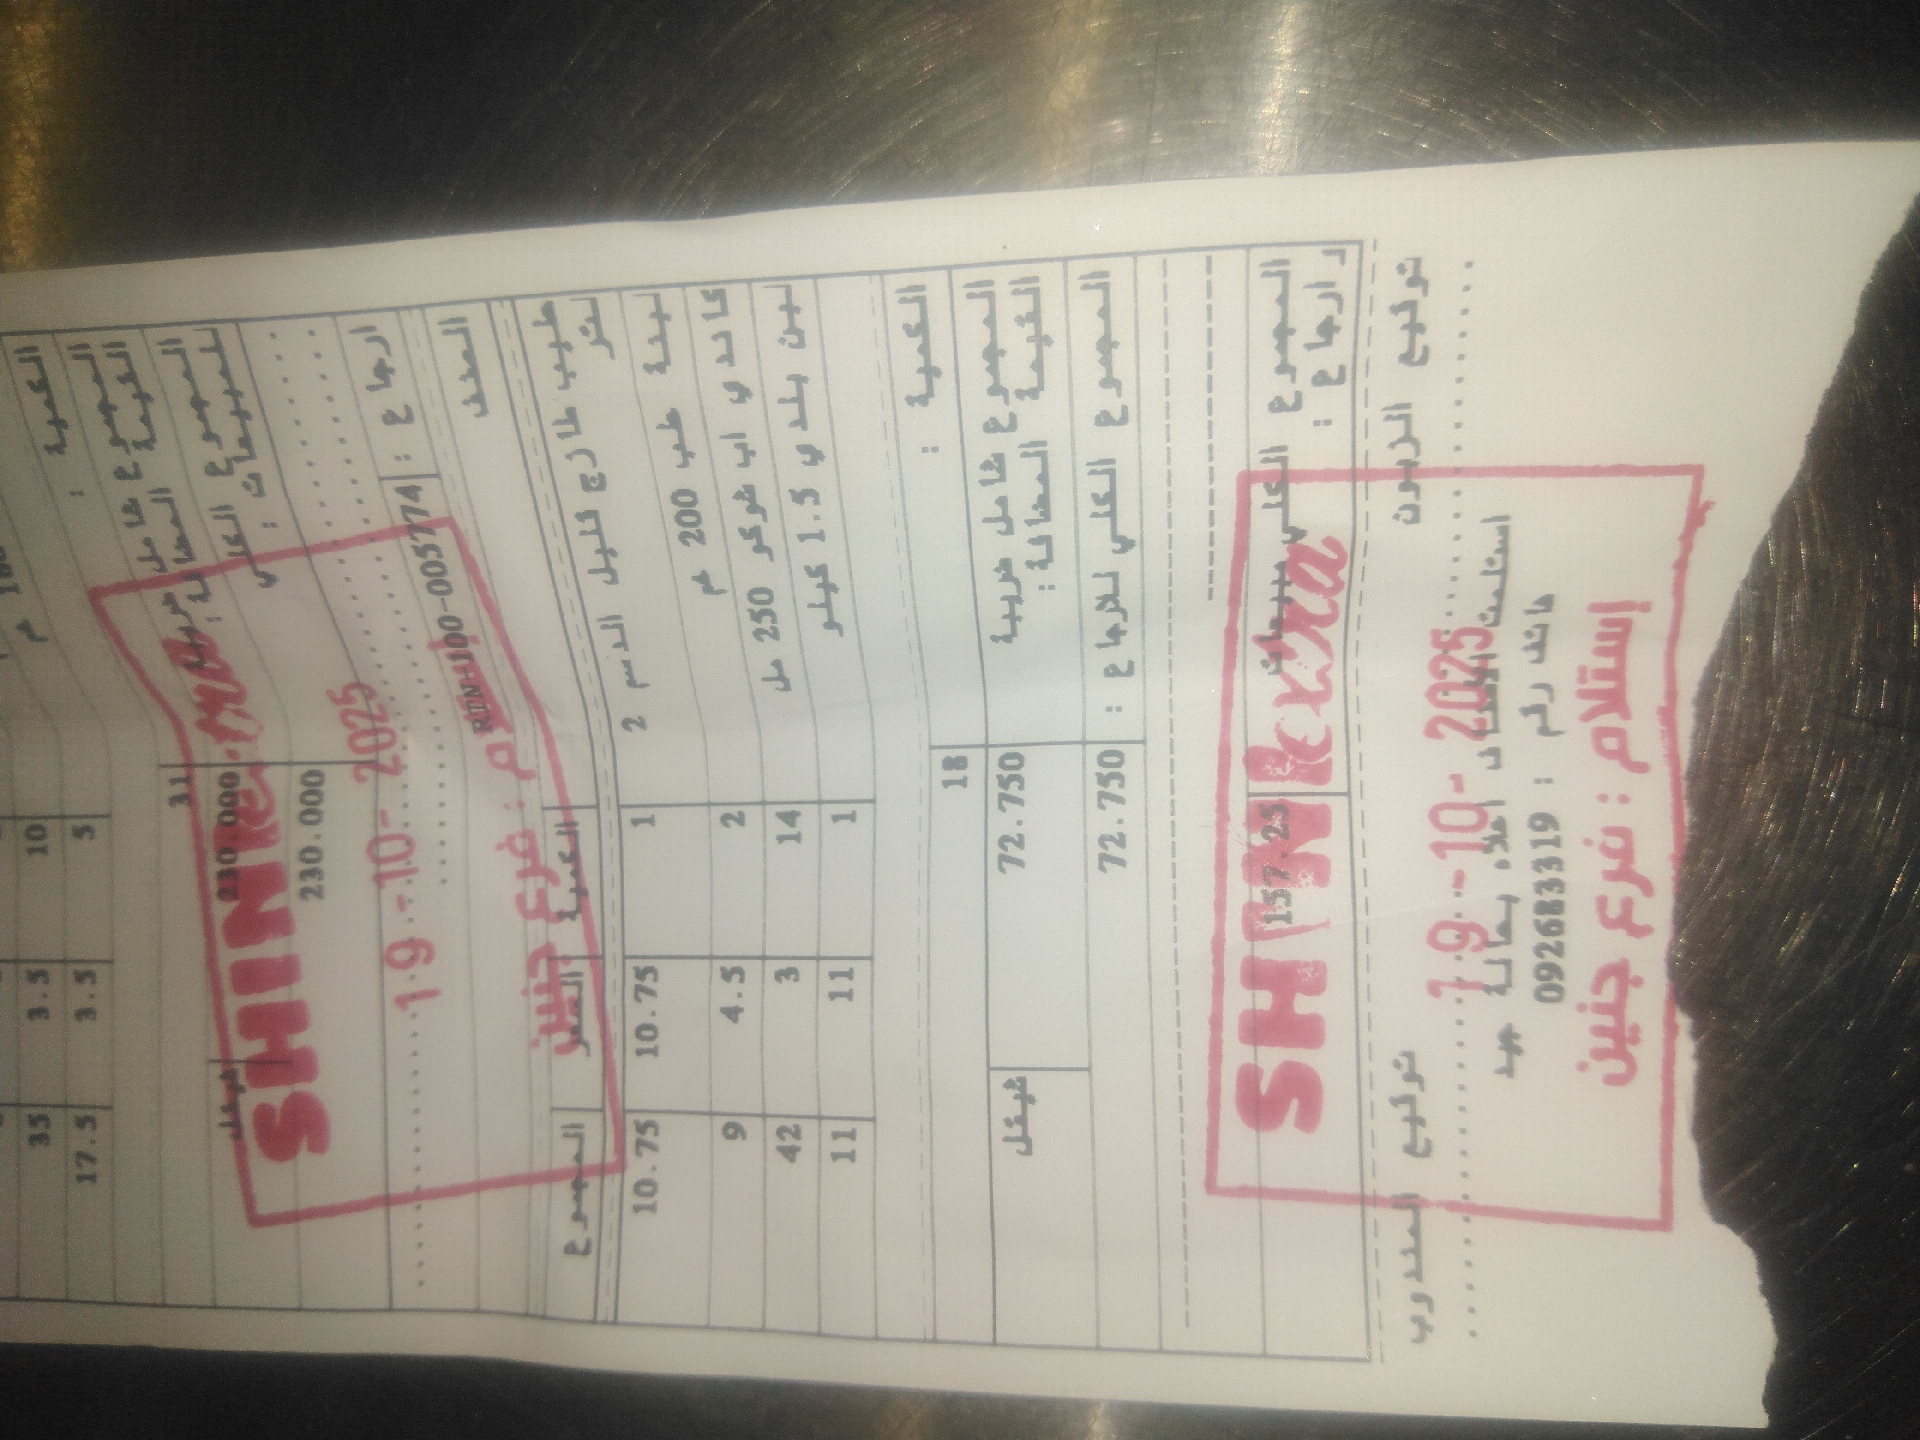 180
غم 10 3.5 35
5 3.5 17.5
الكمية : 31
المجموع شامل ضريبة
القيمة المضافة : 230.000 شيكل
المجموع الكلي
للمبيعات : 230.000
ارجاع : RTN-100-005774
SHINE extra
19-10-2025
إستلام : فرع جنين
الصنف الكمية السعر المجموع
حليب طازج قليل الدسم 2
لتر 1 10.75 10.75
لبنة علب 200 غم 2 4.5 9
كاندي اب شوكو 250 مل 14 3 42
لبن بلدي 1.5 كيلو 1 11 11
الكمية : 18
المجموع شامل ضريبة
القيمة المضافة : 72.750 شيكل
المجموع الكلي للارجاع : 72.750
المجموع الكلي مبيعات 157.25
ر ارجاع :
SHINE extra
توقيع الزبون توقيع المندوب
19-10-2025
استلمت الاصناف اعلاه بحالة جيد
هاتف رقم : 092683319
إستلام : فرع جنين